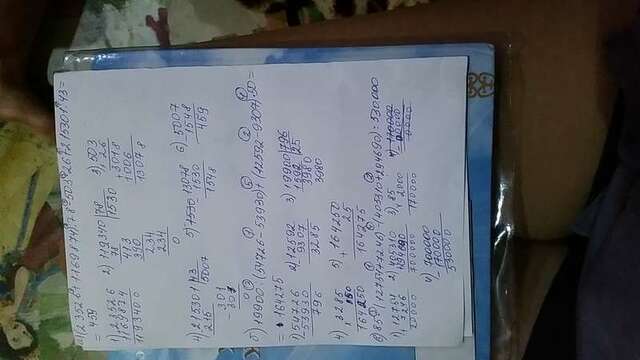 а) (23526+1169874):78-503·26+215301:43=
= 459
1) 23526 2) 119340 |78 3) 503
+ 169874 78 1530 · 26
119340 0 413 3018
390 + 1006
234 13078
234
0
4) 215301 |43 5) 1530 13078 6) 5007
215 5007 - 1530 - 1548
301 1548 459
- 301
0
б) 19900:(54726-53930)+(12592-9307)·50=
= 164275
1) 54726 2) 12592 3) 19900 |796
- 53930 9307 1592 25
796 3285 3980
3980
4) 3285 5) 164250
· 50 + 25
164250 164275
в) 85·(12754+7246)-(405310+294690)=530000
1) 12754 2) 405310 3) 85 4) 170000
+ 7246 294690 2000
20000 700000 170000 0000
4) 700000
- 170000
530000